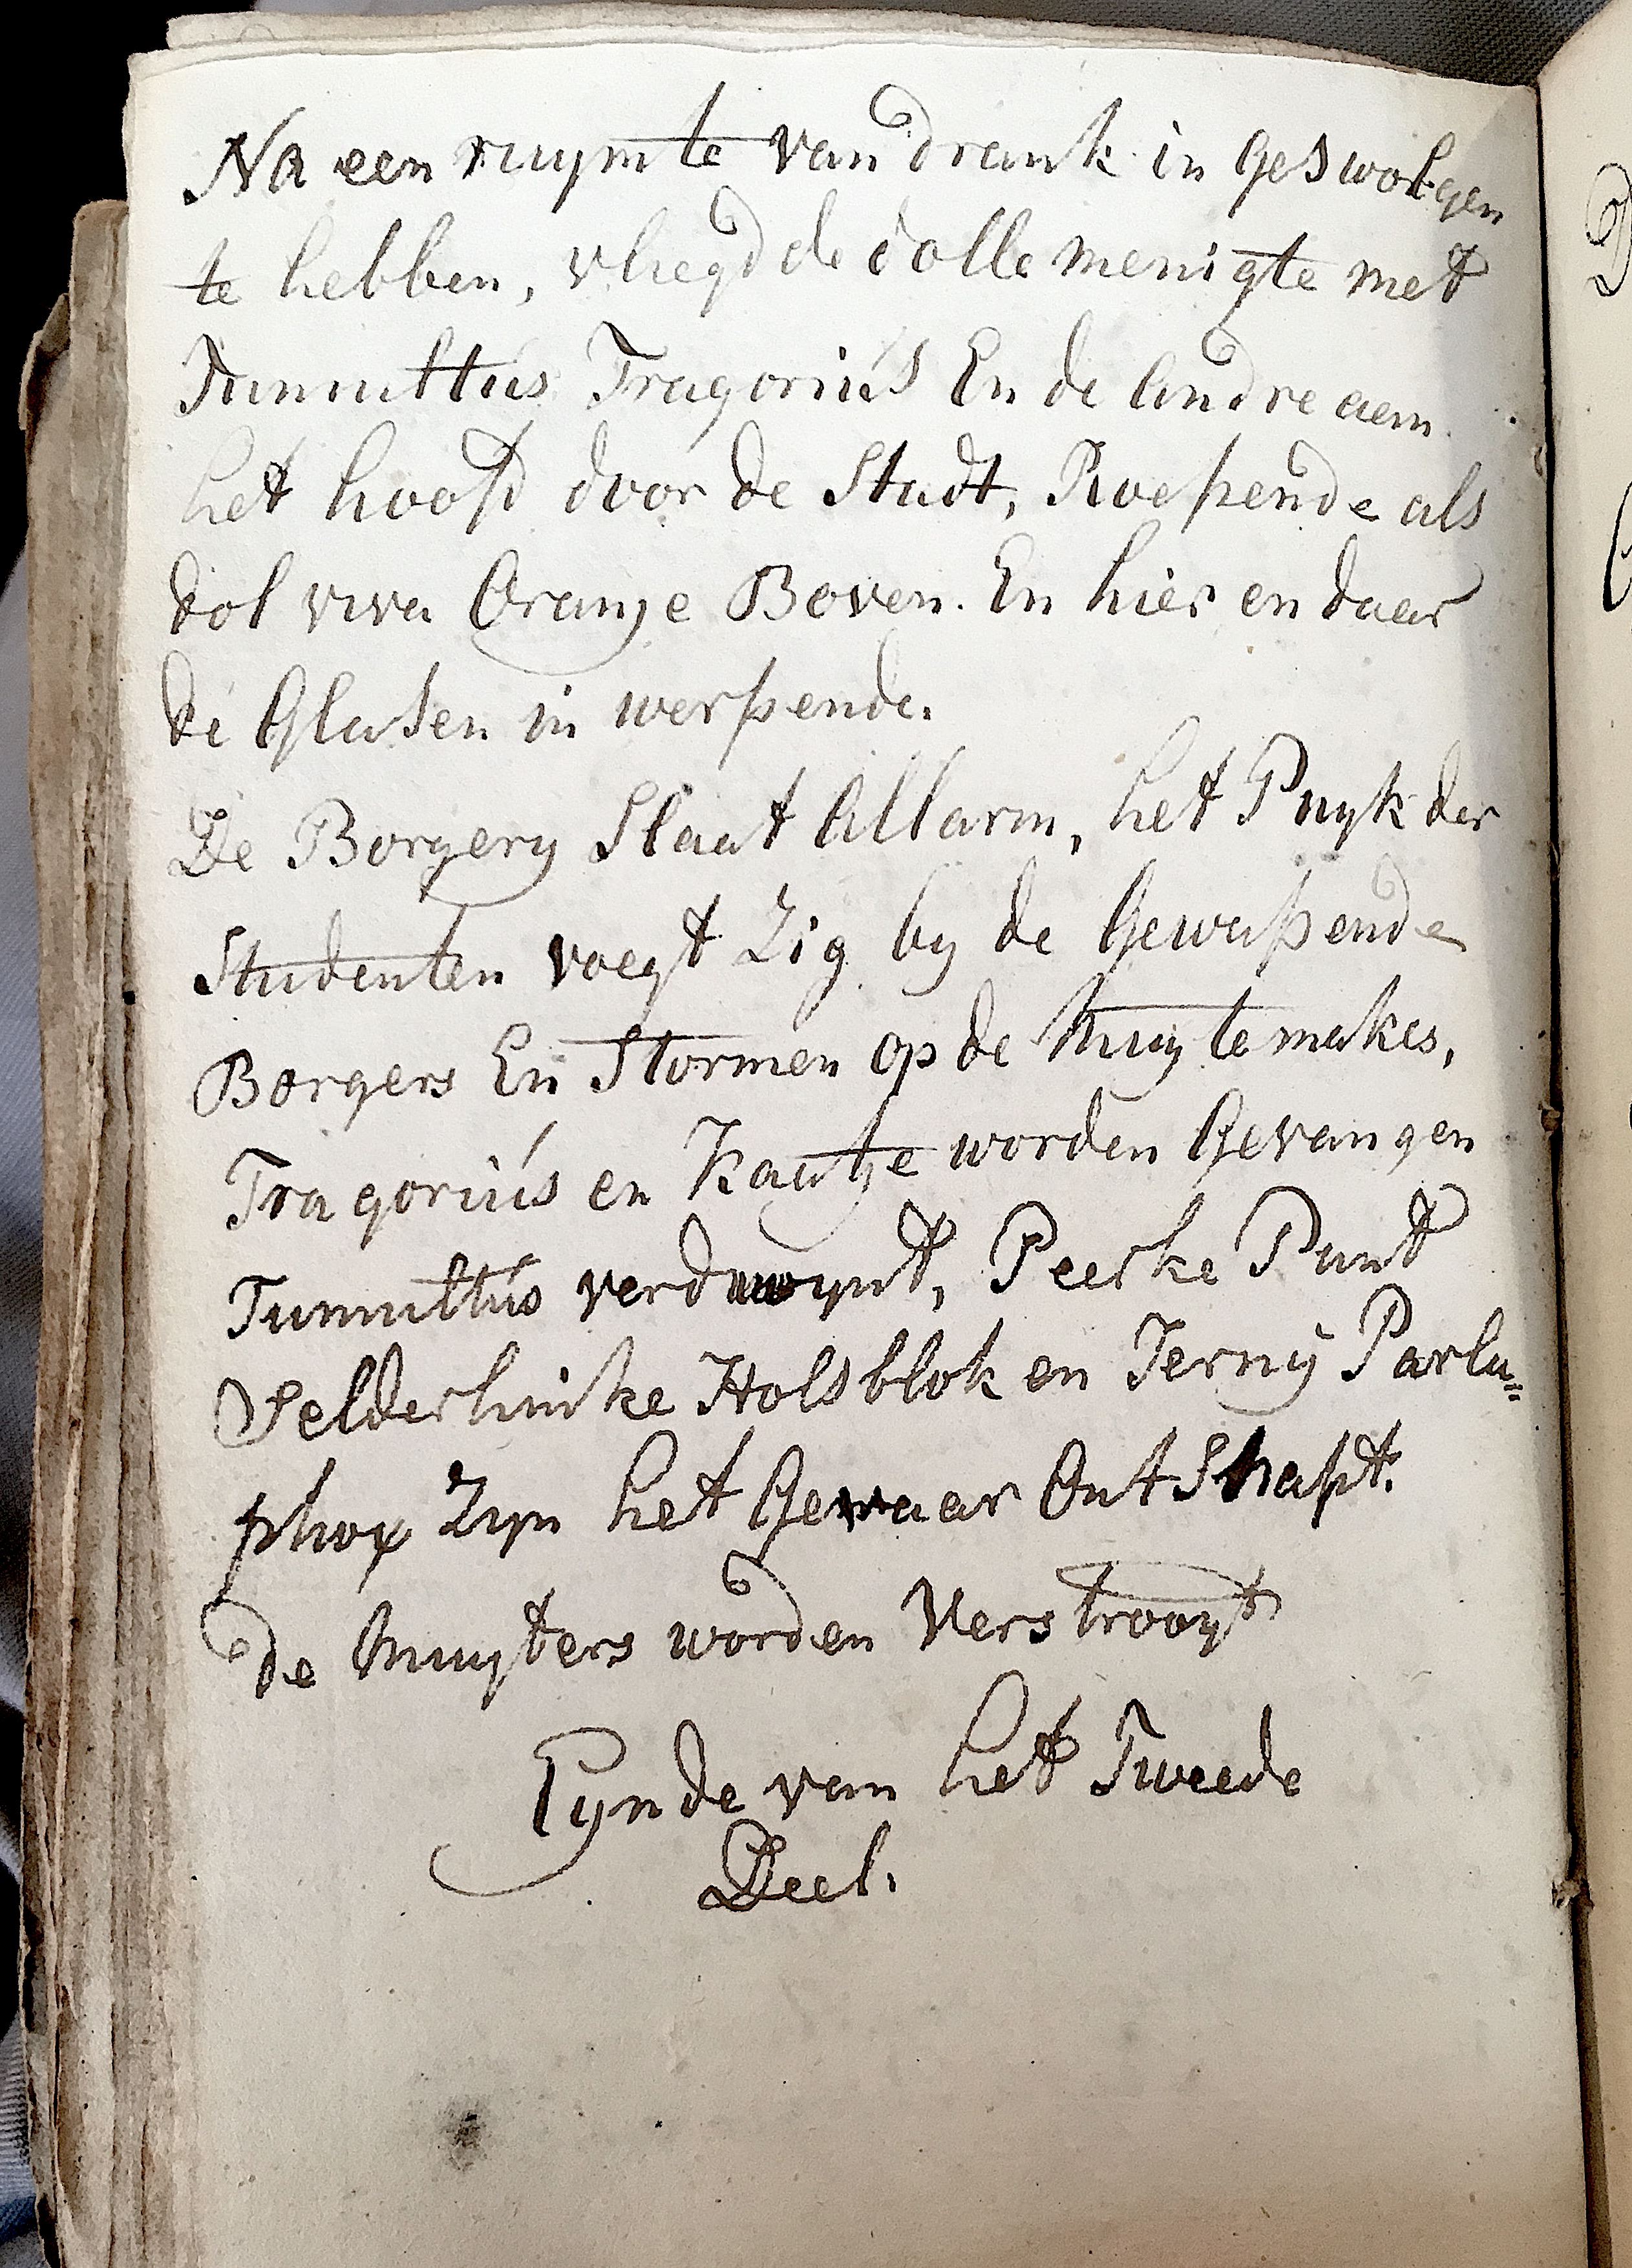 Na een ruymte van drank in geswolgen
te hebben, vliegd de dolle menigte met
Tumultus Tragorius En de Andre aen
het hoofd door de Stadt, Roepende als
dol viva Oranje Boven. En hier en daer
de Glasen in werpende.
De Borgery Slaat Allarm, het Puyk der
Studenten voegt Zig by de Gewapende
Borgers En Stormen op de Muytemakes,
Tragorius en Kaatje worden Gevangen
Tumultus verdwynt, Peerke Punt
Selderhinke Holsblok en Jerny Parlu=
phox Zyn het Gevaar Ontsnapt.
de Muyters worden Verstrooyt
Eynde van het Tweede
Deel.